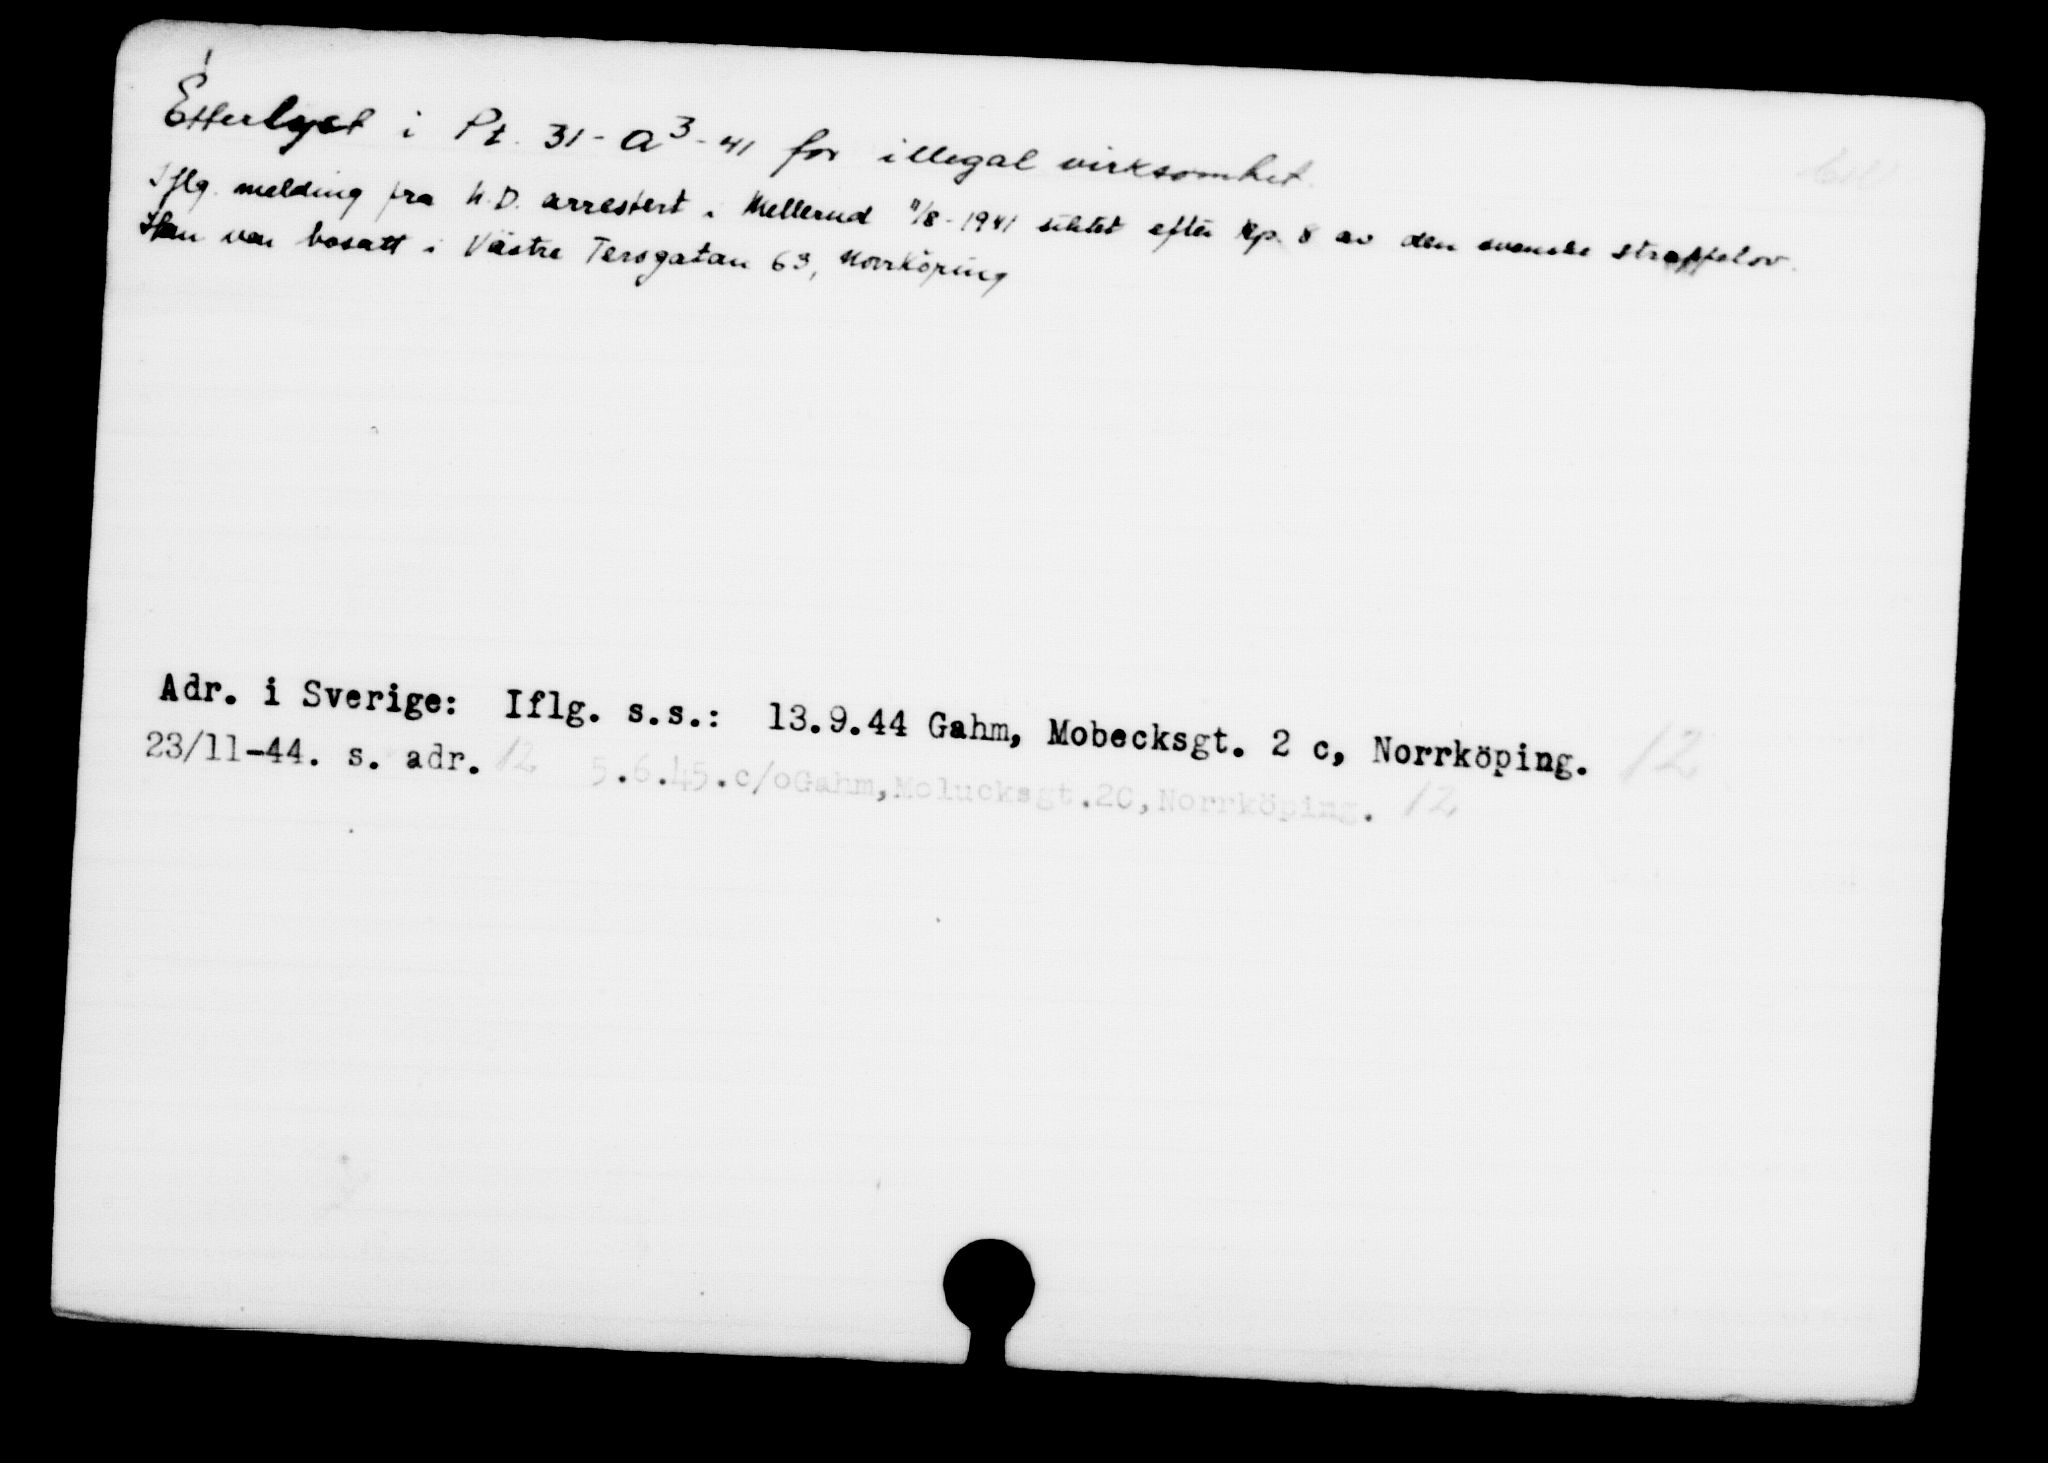 Etterlyst i Pt. 31-a3-41 for illegal virksomhet.
Iflg. melding fra U.D. arrestert i Mellerud 11/8-1941 siktet efter Kp. 8 av den svenske straffelov.
Han var bosatt i Västra Tersgatan 63, Norrköping
Adr. i Sverige: Iflg. s.s.: 13.9.44 Gahm, Mobecksgt. 2 c, Norrköping. 12
23/11-44. s. adr. 12 5.6.45.c/oGahm,Molucksgt.2C,Norrköping. 12